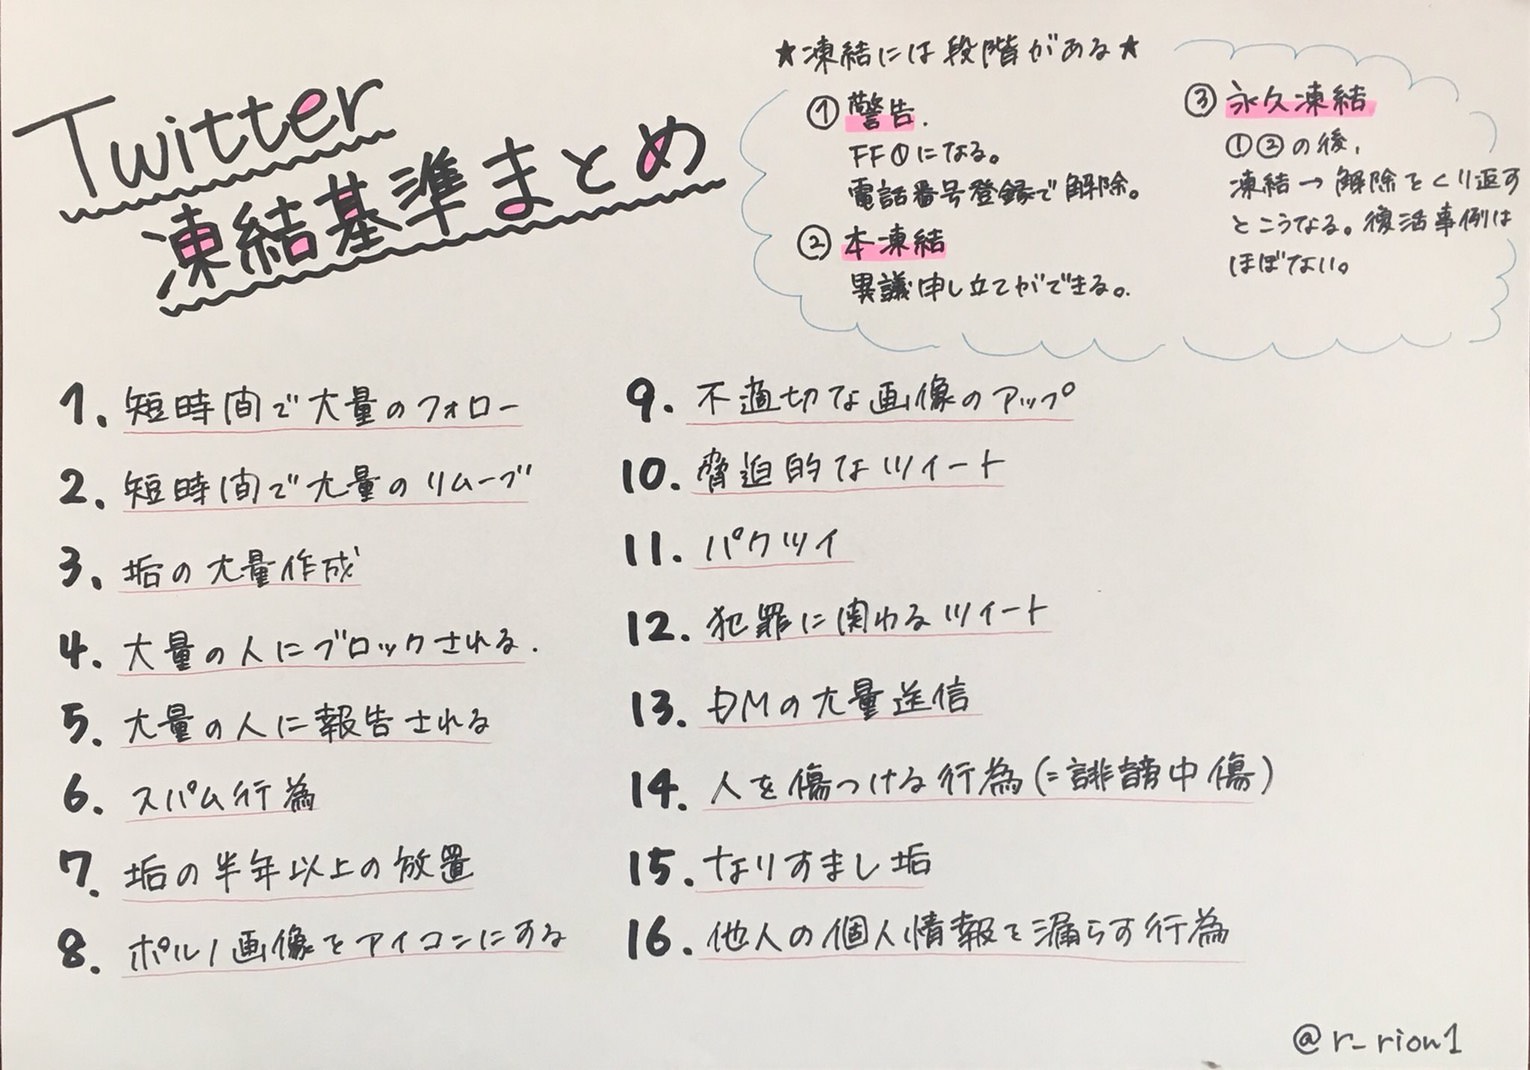 Twitter
凍結基準まとめ
★凍結には段階がある★
① 警告.
FF⓪になる。
電話番号登録で解除。
② 本凍結
異議申し立てができる。
③ 永久凍結
①②の後、
凍結→解除をくり返す
とこうなる。復活事例は
ほぼない。
1. 短時間で大量のフォロー
2. 短時間で大量のリムーブ
3. 垢の大量作成
4. 大量の人にブロックされる.
5. 大量の人に報告される
6. スパム行為
7. 垢の半年以上の放置
8. ポルノ画像をアイコンにする
9. 不適切な画像のアップ
10. 脅迫的なツイート
11. パクツイ
12. 犯罪に関わるツイート
13. DMの大量送信
14. 人を傷つける行為(=誹謗中傷)
15. なりすまし垢
16. 他人の個人情報を漏らす行為
@r_rion1